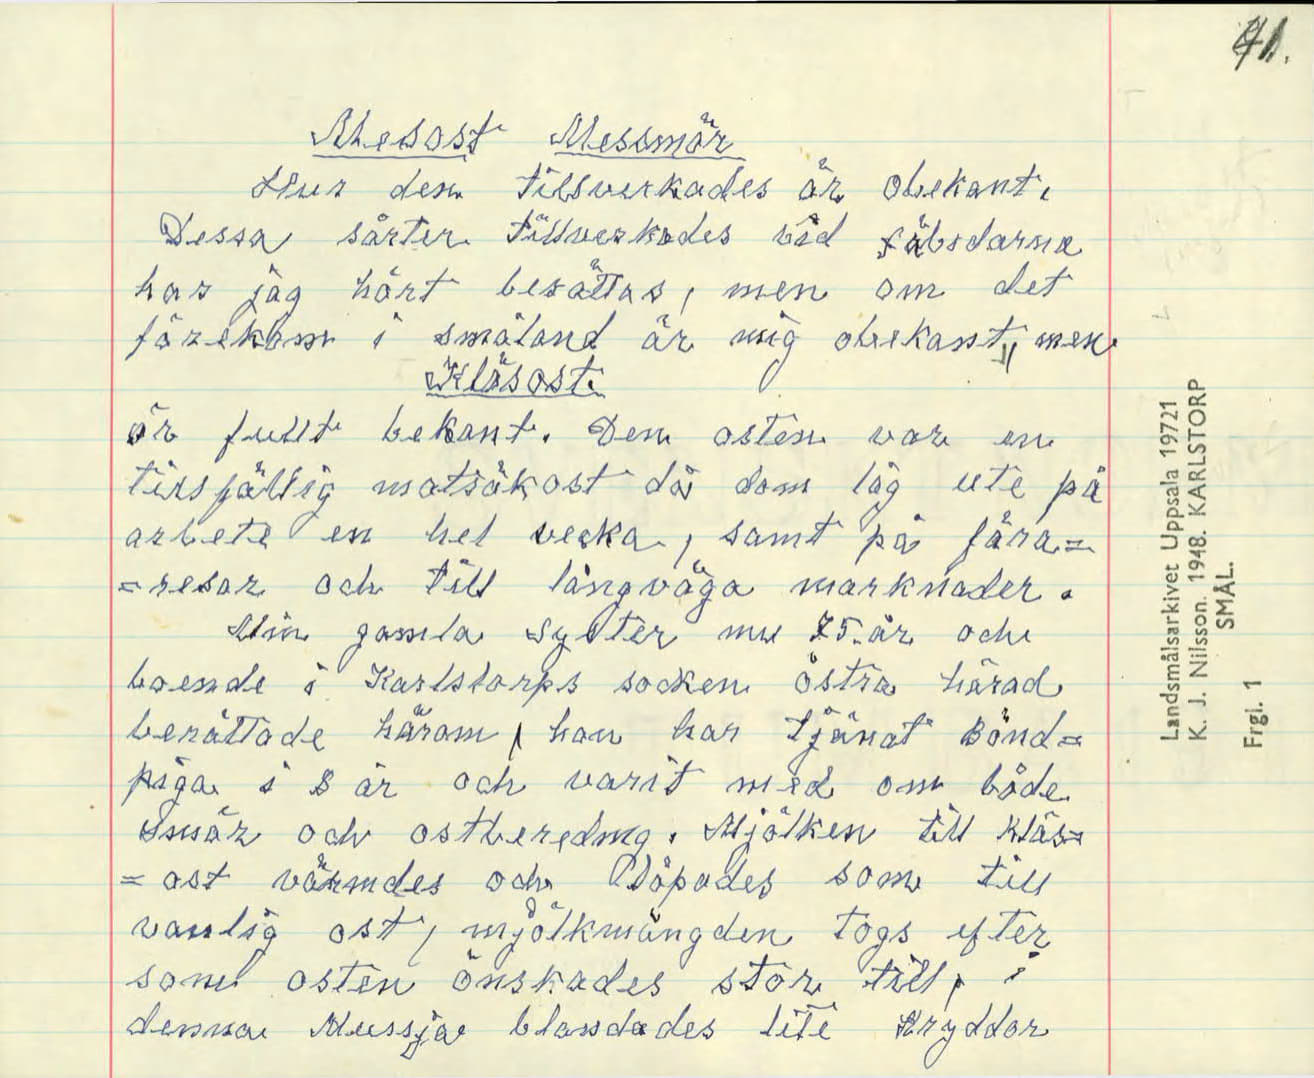 41.
Mesost Messmör
Hur den tillverkades är obekant.
Dessa sårter tillverkades vid fäbodarna
har jag hört berättas, men om det
förekom i småland är mig obekant, men
Kläsost.
är fullt bekant. Den osten var en
tillfällig matsäkost då dom låg ute på
arbete en hel vecka, samt på fåra=
=resor och till långväga marknader.
Min gamla syster nu 75.år och
boende i Karlstorps socken östra härad
berättade härom, hon har tjänat Bond=
piga i 8 år och varit med om både
smör och ostberedng. Mjölken till kläs=
=ost värmdes och löpades som till
vanlig ost, mjölkmängden togs efter
som osten önskades stor till, i
denna Mussja blandades lite Kryddor
Landsmålsarkivet Uppsala 19721
K. J. Nilsson. 1948. KARLSTORP
SMÅL.
Frgl. 1